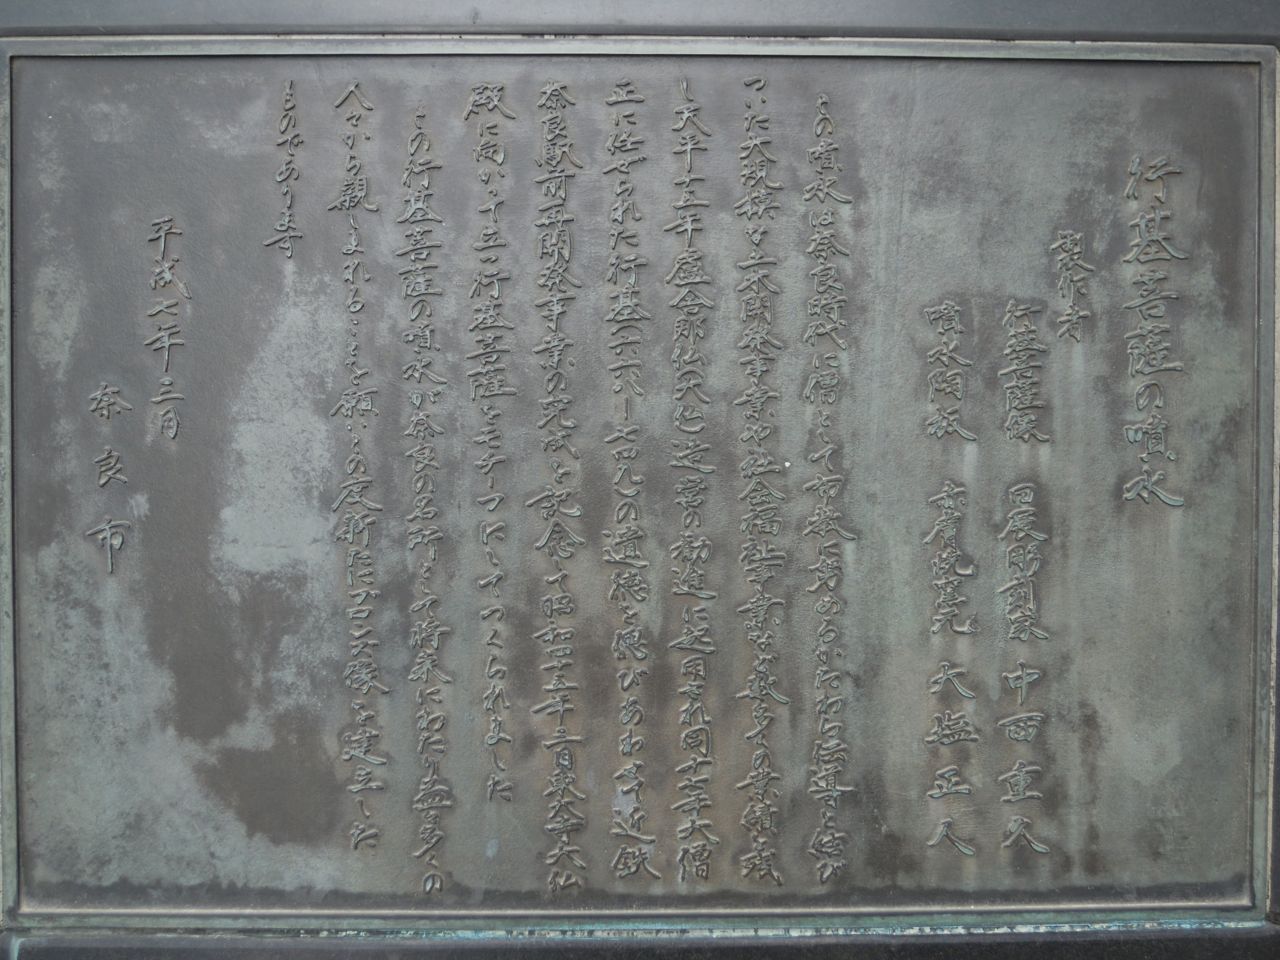 行基菩薩の噴水
製作者
行基菩薩像 田展彫刻家 中西重久
噴水陶板 赤膚焼窯元 大塩正人
この噴水は奈良時代に僧として布教に努めるかたわら伝導を終
ついた大規模な土木開発事業や社会福祉事業など数多くの業績を残
し天平十五年盧舎那仏の大仏造営の勧進に起用され同十七年大僧
正に任ぜられた行基六六八ー七四九の遺徳を偲びあわせて近鉄
奈良駅前再開発事業の完成を記念して昭和四十五年三月東大寺大仏
殿に向かって立つ行基菩薩をモチーフにしてつくられました
この行基菩薩の噴水が奈良の名所として将来にわたり益々多くの
人々から親しまれることを願いこの度新たにブロンズ像を建立した
ものであります
平成七年三月
奈良市